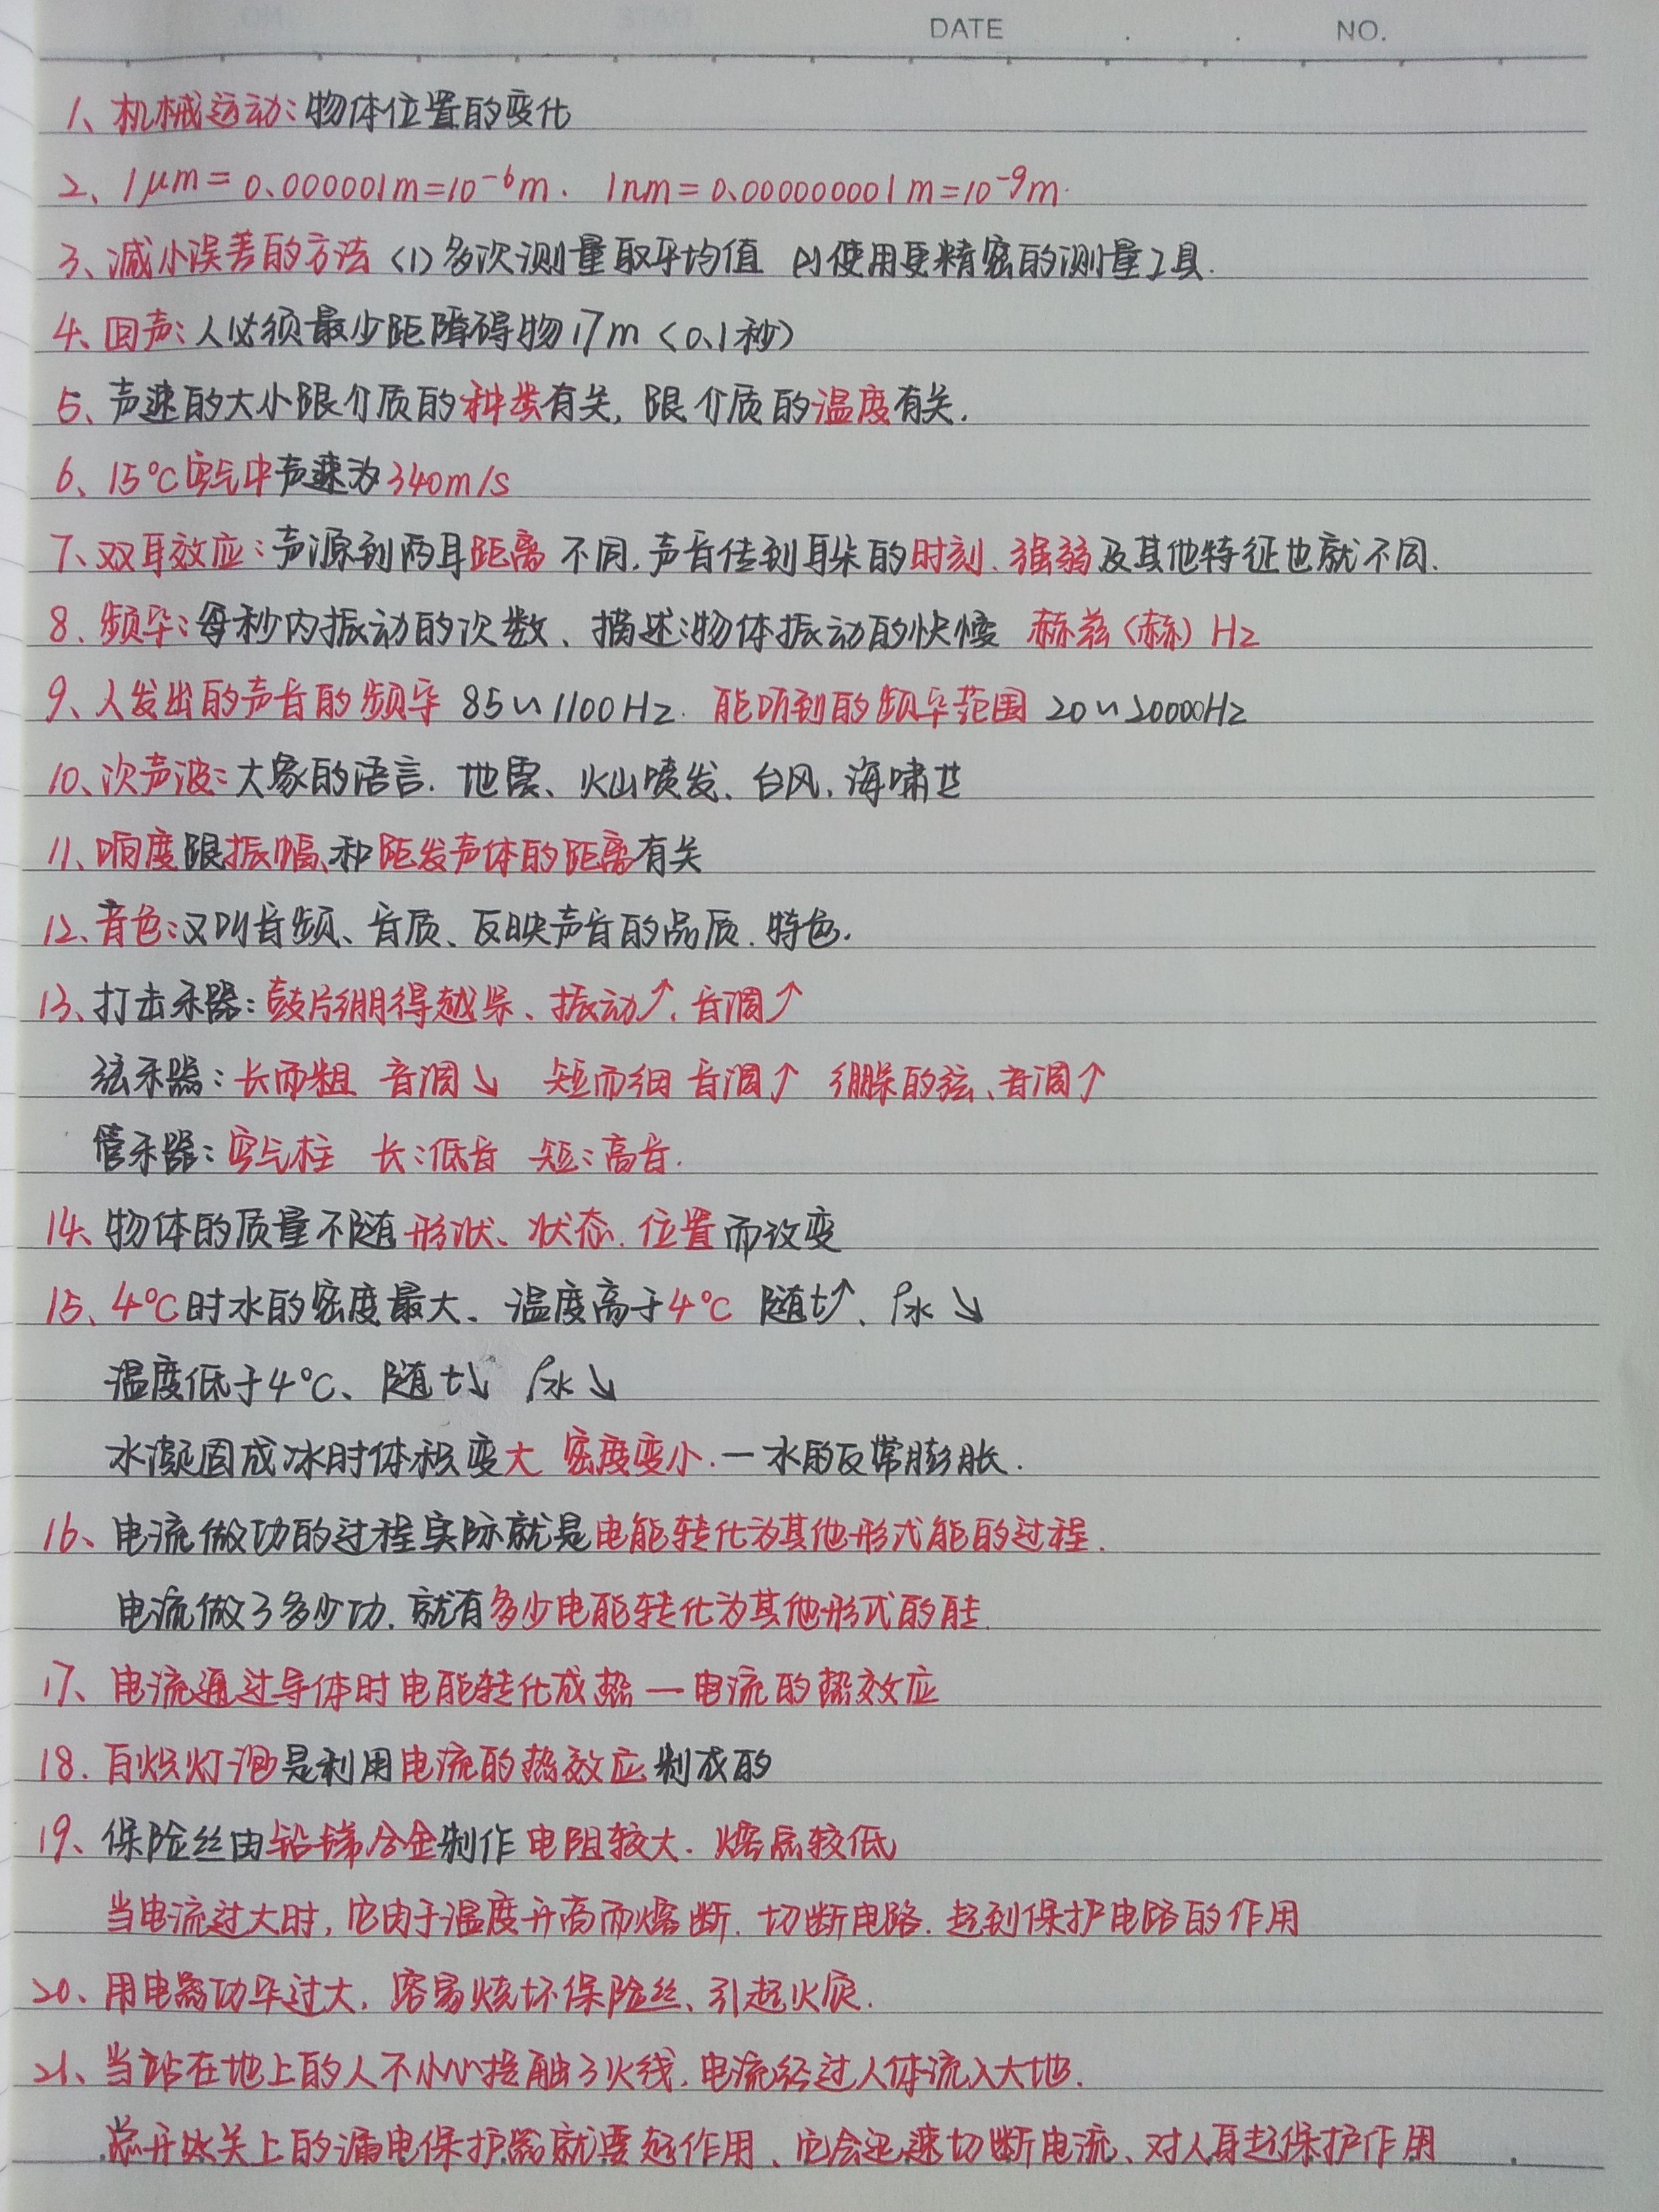 DATE . . NO.
1、机械运动：物体位置的变化
2、1μm=0.000001m=10⁻⁶m. 1nm=0.000000001m=10⁻⁹m.
3、减小误差的方法 (1)多次测量取平均值 (2)使用更精密的测量工具.
4、回声：人必须最少距障碍物17m (0.1秒)
5、声速的大小跟介质的种类有关, 跟介质的温度有关.
6、15℃空气中声速为340m/s
7、双耳效应：声源到两耳距离不同,声音传到耳朵的时刻、强弱及其他特征也就不同.
8、频率：每秒内振动的次数、描述物体振动的快慢 赫兹(赫) Hz
9、人发出的声音的频率 85~1100Hz. 能听到的频率范围 20~20000Hz
10、次声波：大象的语言. 地震、火山喷发、台风、海啸
11、响度跟振幅、和距发声体的距离有关
12、音色：又叫音频、音质、反映声音的品质.特色.
13、打击乐器：鼓片绷得越紧、振动↑、音调↑
弦乐器：长而粗 音调↘ 短而细 音调↑ 绷紧的弦、音调↑
管乐器：空气柱 长：低音 短：高音.
14、物体的质量不随形状、状态、位置而改变
15、4℃时水的密度最大、温度高于4℃ 随t↑、ρ水↘
温度低于4℃、随t↓ ρ水↘
水凝固成冰时体积变大 密度变小.—水的反常膨胀.
16、电流做功的过程实际就是电能转化为其他形式能的过程.
电流做了多少功.就有多少电能转化为其他形式的能.
17、电流通过导体时电能转化成热—电流的热效应
18.白炽灯泡是利用电流的热效应制成的
19、保险丝由铅锑合金制作 电阻较大.熔点较低
当电流过大时,它由于温度升高而熔断.切断电路.起到保护电路的作用
20、用电器功率过大,容易烧坏保险丝、引起火灾.
21、当站在地上的人不小心接触了火线.电流经过人体流入大地.
总开关上的漏电保护器就要起作用、它会迅速切断电流、对人身起保护作用.